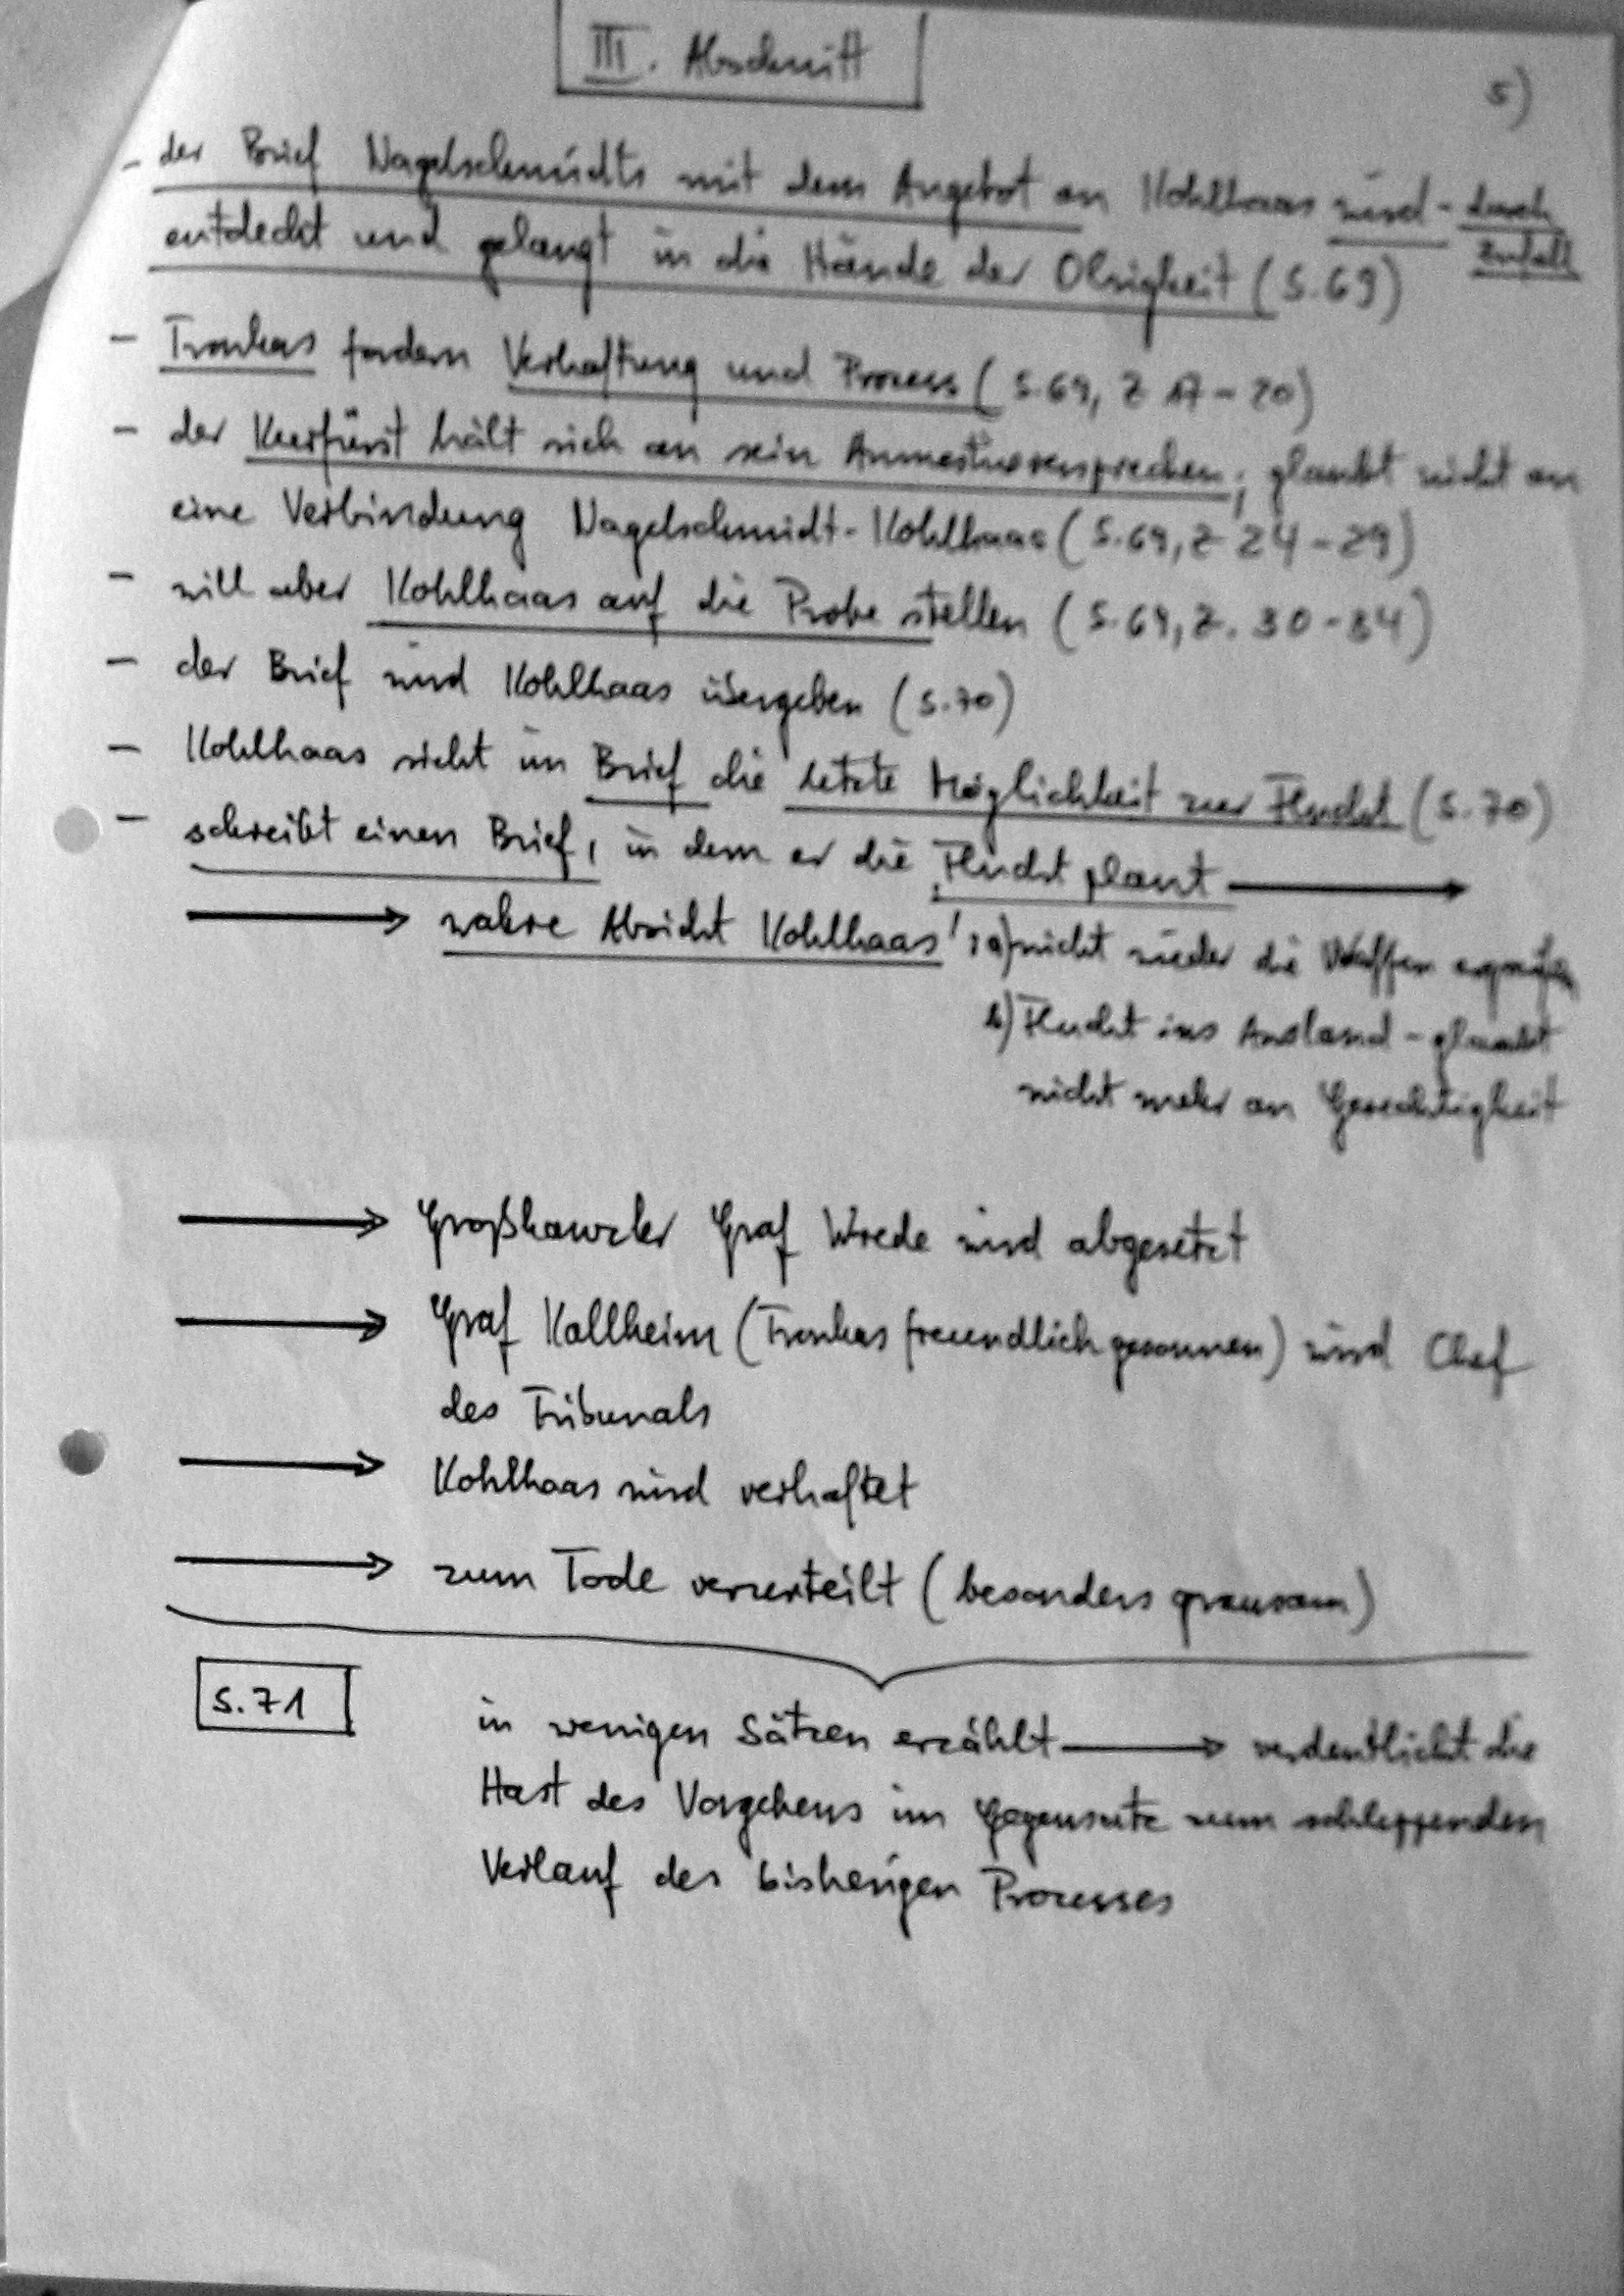 III. Abschnitt
5)
- der Brief Nagelschmidts mit dem Angebot an Kohlhaas wird - durch Zufall
entdeckt und gelangt in die Hände der Obrigkeit (S.69)
- Tronkas fordern Verhaftung und Prozess (S.69, Z 17-20)
- der Kurfürst hält sich an sein Amnestieversprechen; glaubt nicht an
eine Verbindung Nagelschmidt-Kohlhaas (S.69, Z 24-29)
- will aber Kohlhaas auf die Probe stellen (S.69, Z. 30-34)
- der Brief wird Kohlhaas übergeben (S.70)
- Kohlhaas sieht im Brief die letzte Möglichkeit zur Flucht (S.70)
- schreibt einen Brief, in dem er die Flucht plant →
→ wahre Absicht Kohlhaas': a) nicht wieder die Waffen ergreifen
b) Flucht ins Ausland - glaubt
nicht mehr an Gerechtigkeit
→ Großkanzler Graf Wrede wird abgesetzt
→ Graf Kallheim (Tronkas freundlich gesonnen) wird Chef
des Tribunals
→ Kohlhaas wird verhaftet
→ zum Tode verurteilt (besonders grausam)
S.71
in wenigen Sätzen erzählt → verdeutlicht die
Hast des Vorgehens im Gegensatz zum schleppenden
Verlauf des bisherigen Prozesses